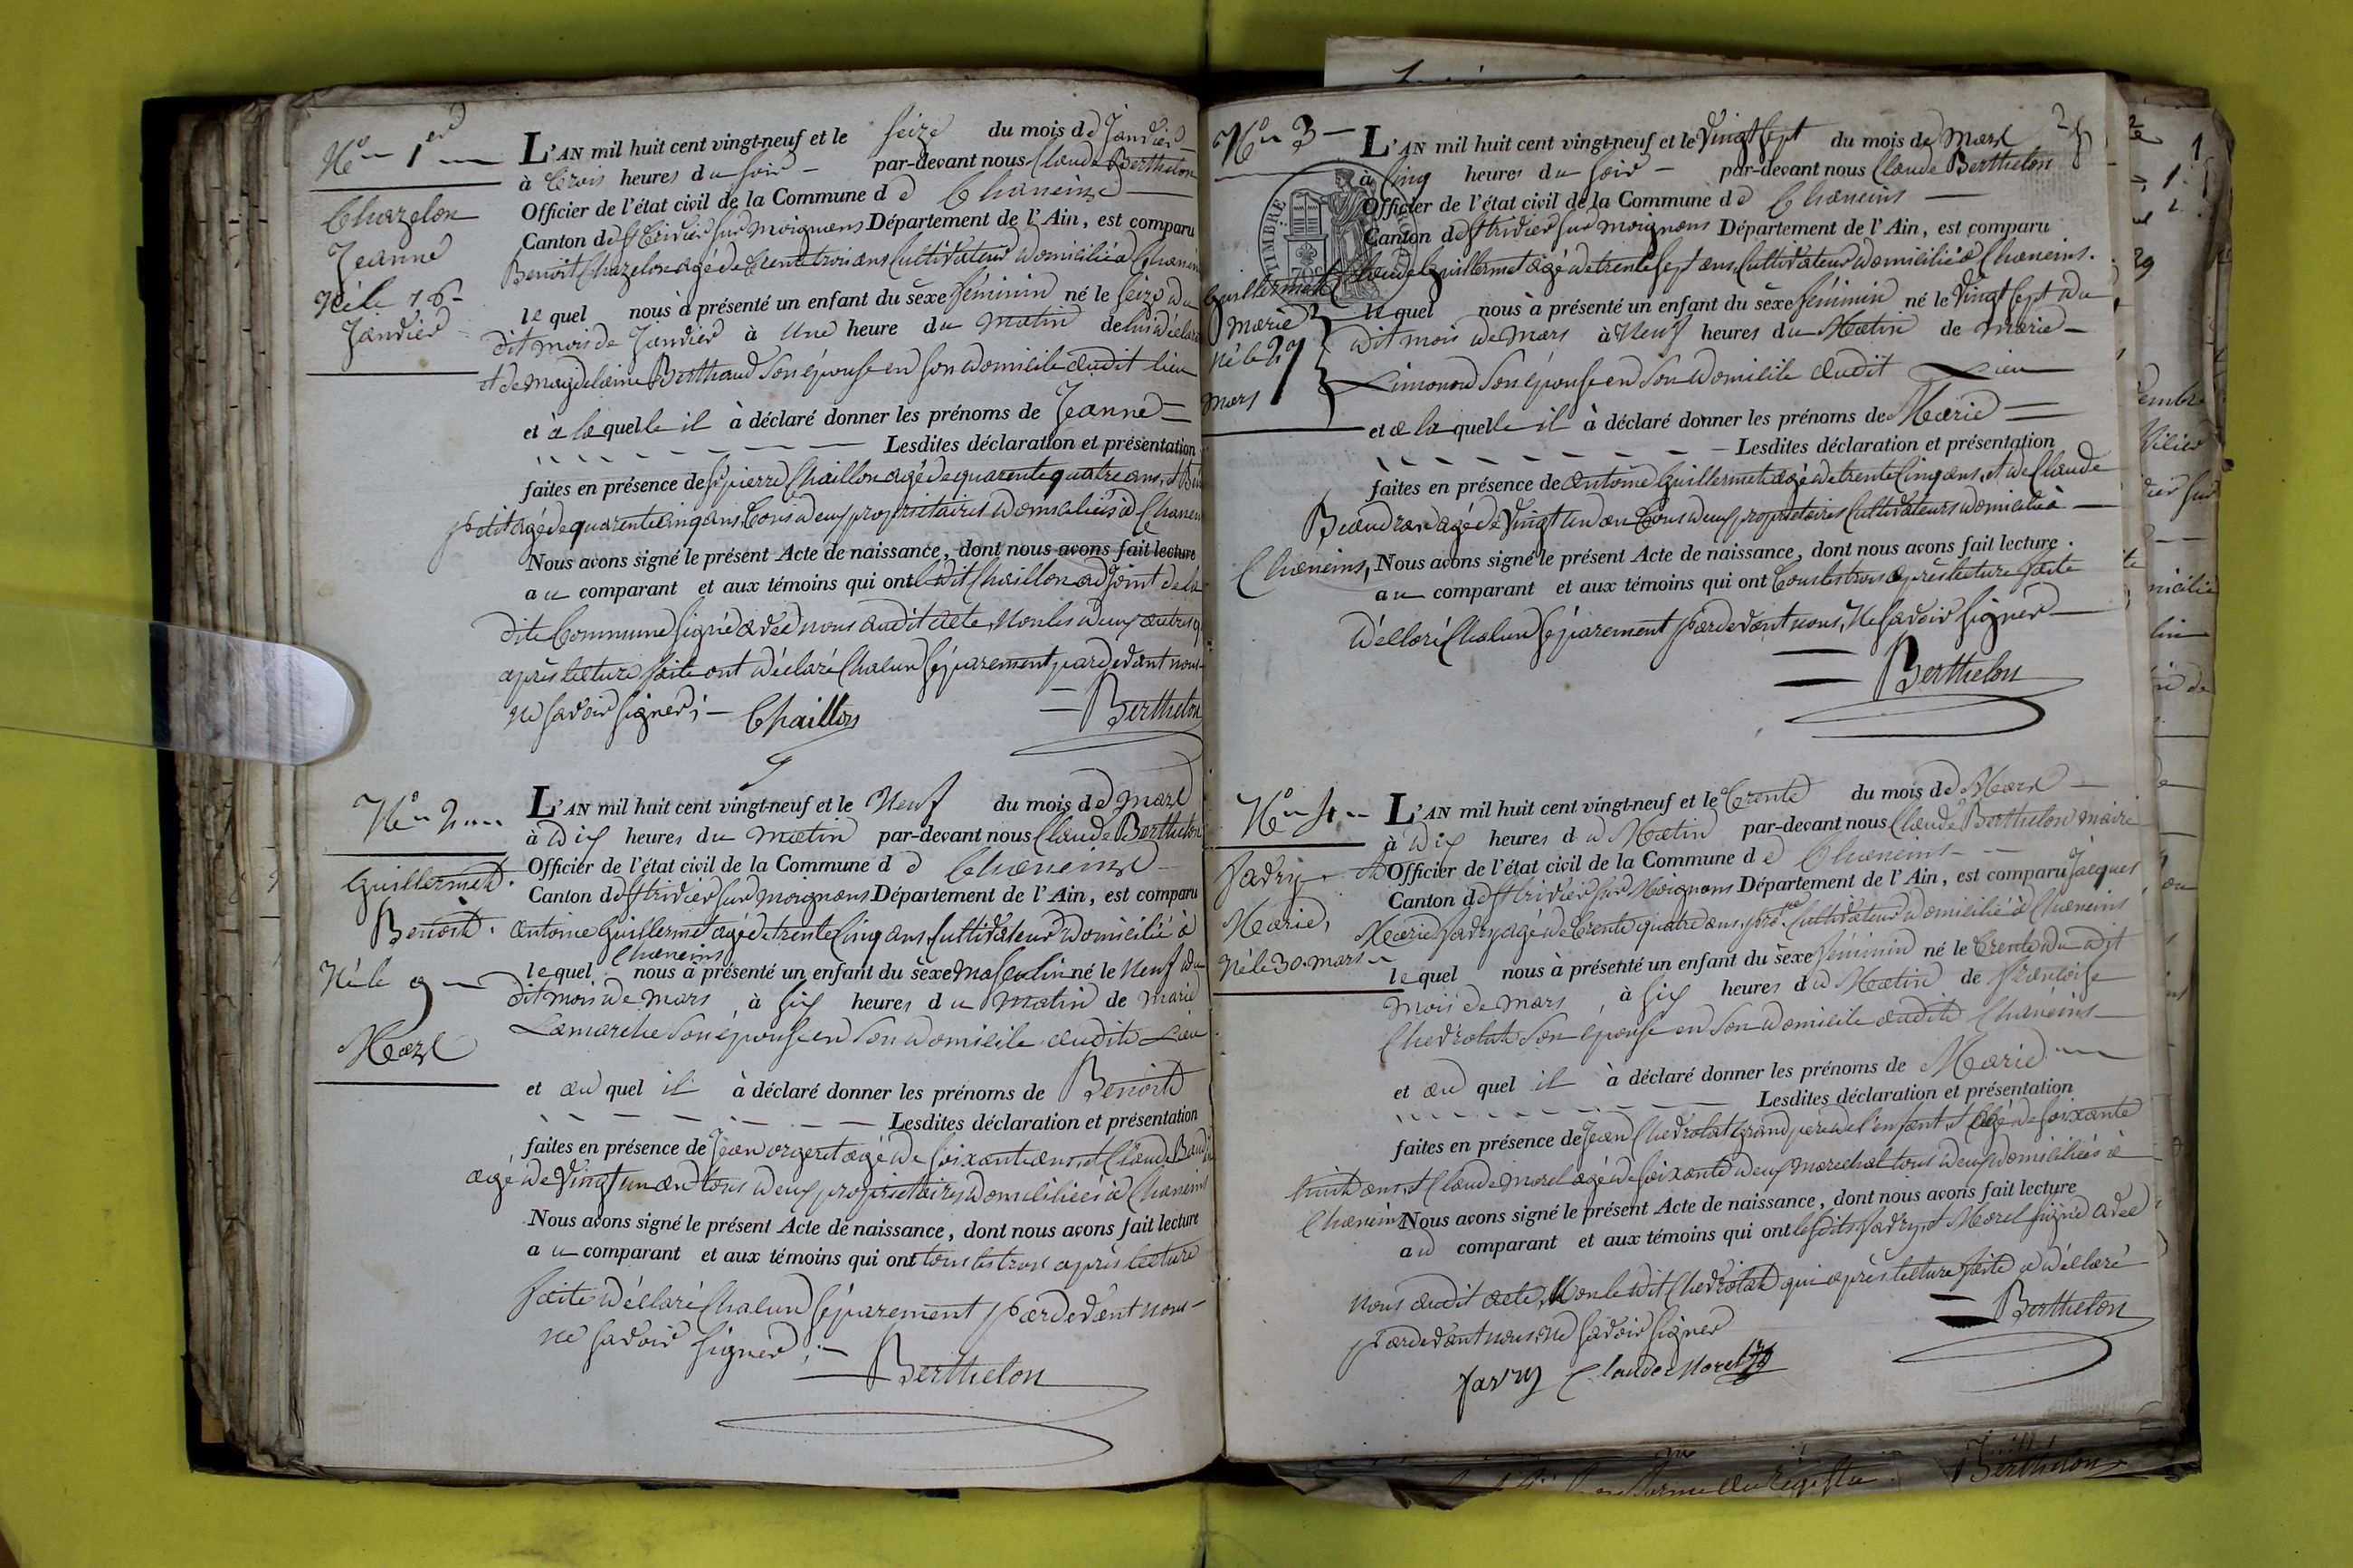 N.o 1er
Chazelon
Jeanne
Né le 16
Janvier
L'AN mil huit cent vingt-neuf et le seize du mois de Janvier
à trois heures du soir par-devant nous Claude Berthelon
Officier de l'état civil de la Commune de Chaneins
Canton de St Trivier sur moignans Département de l'Ain, est comparu
Benoit Chazelon agé de trente trois ans Cultivateur domicilié à Chaneins
le quel nous à présenté un enfant du sexe féminin né le seize du
dit mois de Janvier à une heure du matin de lui déclara
et de magdelaine Berthaud son épouse en son domicile audit lieu
et à la quelle il à déclaré donner les prénoms de Jeanne
Lesdites déclaration et présentation
faites en présence de Sr pierre Chaillon agé de quarente quatre ans, et
petit agé de quarente cinq ans tous deux propriétaires domiciliés à Chanein
Nous avons signé le présent Acte de naissance, dont nous avons fait lecture
au comparant et aux témoins qui ont ledit Chaillon adjoint de la
dite Commune signé avec nous audit acte, Non les deux autres q
après lecture faite ont déclaré Chacun séparement pardevant nous
ne savoir signer; Chaillon Berthelon
N.o 2
Guillermet
Benoit
Né le 9
Mars
L'AN mil huit cent vingt-neuf et le Neuf du mois de mars
à dix heures du matin par-devant nous Claude Berthelon
Officier de l'état civil de la Commune de Chaneins
Canton de St trivier sur moignans Département de l'Ain, est comparu
antoine Guillermet agé de trente cinq ans, Cultivateur domicilié à
Chaneins
le quel nous à présenté un enfant du sexe masculin né le Neuf du
dit mois de mars à six heures du matin de marie
Lamarche son épouse en son domicile audit Lieu
et au quel il à déclaré donner les prénoms de Benoit
Lesdites déclaration et présentation
faites en présence de Jean orgeret agé de soixante ans, et Claude
agé de vingt un an tous deux propriétaires domiciliés à Chaneins
Nous avons signé le présent Acte de naissance, dont nous avons fait lecture
au comparant et aux témoins qui ont tous les trois après lecture
faite déclaré Chacun séparement pardevant nous
ne savoir signer;
Berthelon
N.o 3
Guillermet
Marie
Né le 27
mars
TIMBRE
L'AN mil huit cent vingt-neuf et le vingt sept du mois de Mars
à Cinq heures du soir par-devant nous Claude Berthelon
Officier de l'état civil de la Commune de Chaneins
Canton de St trivier sur moignans Département de l'Ain, est comparu
Claude Guillermet agé de trente sept ans, Cultivateur domicilié à Chaneins.
le quel nous à présenté un enfant du sexe féminin né le vingt sept du
dit mois de mars à Neuf heures du Matin de marie
Limonon son épouse en son domicile audit Lieu
et à la quelle il à déclaré donner les prénoms de Marie
Lesdites déclaration et présentation
faites en présence de antoine Guillermet agé de trente cinq ans, et de Claude
Beaudran agé de vingt un an tous deux propriétaires Cultivateurs domiciliés à
Chaneins, Nous avons signé le présent Acte de naissance, dont nous avons fait lecture.
au comparant et aux témoins qui ont tous les trois après lecture faite
déclaré Chacun séparement pardevant nous, Ne savoir signer
Berthelon
N.o 4
Favry
Marie,
Né le 30. mars
L'AN mil huit cent vingt-neuf et le trente du mois de Mars
à dix heures du Matin par-devant nous Claude Berthelon maire
Officier de l'état civil de la Commune de Chaneins
Canton de St trivier sur Moignans Département de l'Ain, est comparu Jacques
Marie Favry agé de trente quatre ans, pro.re Cultivateur domicilié à Chaneins
le quel nous à présenté un enfant du sexe féminin né le trente du dit
mois de mars, à six heures du Matin de françoise
Chevrolat son épouse en son domicile audit Chaneins
et au quel il à déclaré donner les prénoms de Marie
Lesdites déclaration et présentation
faites en présence de Jean Chevrolat grand père de l'enfant, et agé de soixante
huit ans, et Claude morel agé de soixante deux marechal tous deux domiciliés à
Chaneins Nous avons signé le présent Acte de naissance, dont nous avons fait lecture
au comparant et aux témoins qui ont lesdits favry, et Morel signé avec
nous audit acte, Non ledit Chevrolat qui après lecture faite a déclaré
pardevant nous, ne savoir signer
Berthelon
favry Claude Morel
Berthelon